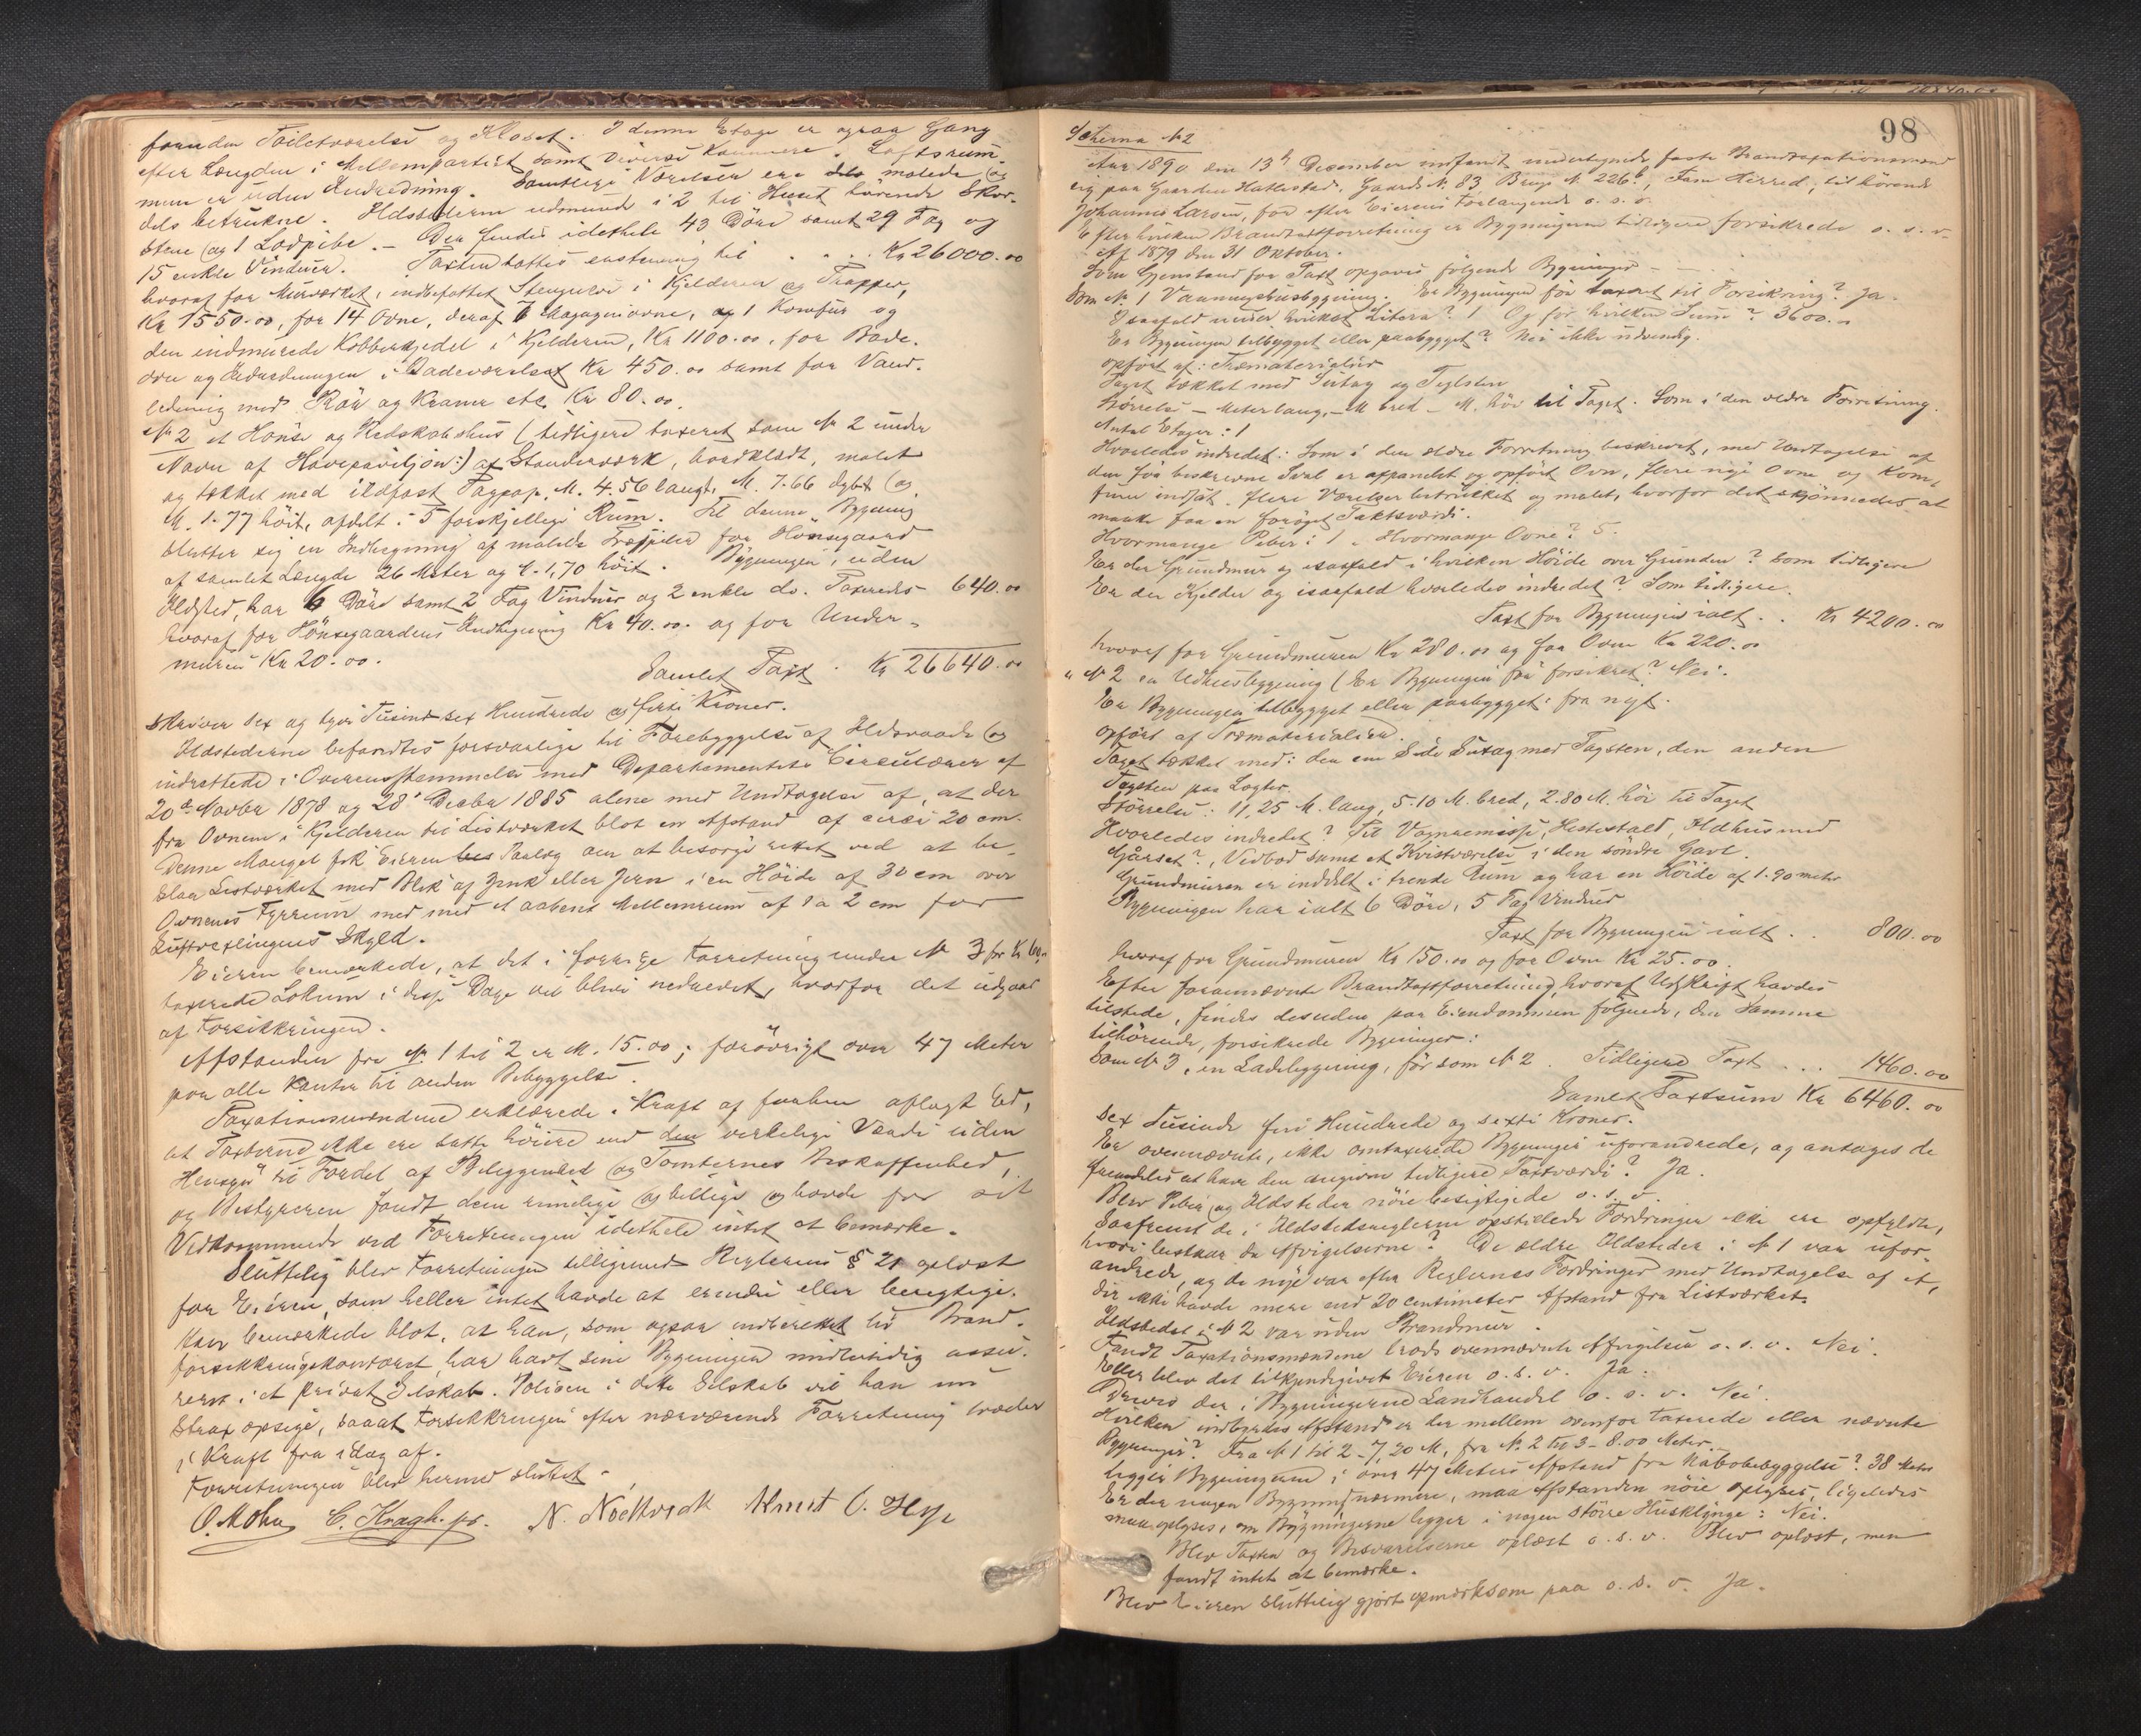 foruden Toiletværelse og Kloset. I denne Etage er ogsaa Gang
efter Længden i Mellempartiet samt diverse Kammere. Loftsrum-
men er uden Indredning. Samtlige Værelser ere dels malede og
dels betrukne. Ildstederne udmunde i 2 til Huset hørende Skor-
stene og 1 Lodpibe. – Der findes idethele 43 Döre samt 29 Fag og
15 enkle Vinduer. Taxten sattes enstemmig til . . . Kr 26000.00
hvoraf for Murværket, indbefattet Stengulve i Kjelderen og Trapper,
Kr 1550.00, for 14 Ovne, deraf 7 Magazinovne, og 1 Komfur og
den indmurede Kobberkjedel i Kjelderen, Kr 1100.00, for Bade-
ovn og Indredningen i Badeværelset Kr 450.00 samt for Vand-
ledning med Rör og Kraner etc. Kr 80.00.
No 2 et Hönse og Redskabshus (tidligere taxeret som No 2 under
Navn af Havepaviljon:) af Stenderværk, bordklædt, malet
og tækket med ildfast Tagpap, M. 4.56 langt, M. 7.66 dybt og
M. 1.77 höit, afdelt i 5 forskjellige Rum. Til denne Bygning
slutter sig en Indhegning af malede Træspiler for Hönsegaard
af samlet Længde 26 Meter og M. 1,70 höit. Bygningen, uden
Ildsted, har 6 Döre samt 2 Fag Vinduer og 2 enkle do. Taxeredes 640.00
hvoraf for Hönsegaardens Indhegning Kr 40.00. og for Under-
muren Kr 20.00.
Samlet Taxt . Kr 26640.00
skriver sex og tyve Tusind sex Hundrede og firti Kroner.
Ildstederne befandtes forsvarlige til Forebyggelse af Ildsvaade og
indrettede i Overensstemmelse med Departementets Circulærer af
20de Novbr 1878 og 28' Decbr 1885 alene med Undtagelse af, at der
fra Ovnen i Kjelderen til Listværket blot er Afstand af circa 20 cm.
Denne Mangel fik Eieren Paalæg om at besørge rettet ved at be-
slaa Listværket med Blik af Zink eller Jern i en Höide af 30 cm over
Ovnenes Fyrrum med med et aabent Mellemrum af 1 a 2 cm for
Luftvexlingens Skyld.
Eieren bemærkede, at det i forrige Forretning under No 3 for Kr 60.
taxerede Lokum i disse Dage vil blive nedrevet, hvorfor det udgaar
af Forsikkringen.
Afstanden fra No 1 til 2 er M. 15.00; forövrigt over 47 Meter
paa alle Kanter til anden Bebyggelse.
Taxationsmændene erklærede i Kraft af forhen aflagt Ed,
at Taxterne ikke ere satte höiere end den virkelige Værdi uden
Hensyn til Fordel af Beliggenhed og Tomternes Beskaffenhed,
og Bestyreren fandt dem rimelige og billige og havde for sit
Vedkommende ved Forretningen idethele intet at bemærke.
Sluttelig blev Forretningen tilligemed Reglernes § 21 oplæst
for Eieren, som heller intet havde at erindre eller berigtige.
Han bemærkede blot, at han, som ogsaa indberettet til Brand-
forsikkringskontoret, har havt sine Bygninger midlertidig assu-
reret i et privat Selskab. Policen i dette Selskab vil han nu
strax opsige, saaat Forsikkringen efter nærværende Forretning træder
i Kraft fra idag af.
Forretningen blev hermed sluttet.
O. Mohn C. Kragh. fs. N. Knut O.
98
Schema No 2
Aar 1890 den 13de December indfandt undertegnede faste Brandtaxationsmænd
sig paa Gaarden Hatlestad, Gaards No. 83, Brugs No. 226b, Fane Herred, tilhörende
Johannes Larsen, for efter Eierens Forlangende o. s. v.
Efter hvilken Brandtaxtforretning er Bygningerne tidligere forsikrede o. s. v.
Af 1879 den 31 Oktober.
Som Gjenstand for Taxt opgaves følgende Bygninger –
Som No. 1 Vaaningshusbygning. Er Bygningen för taxeret til Forsikring? Ja.
I saafald under hvilket Litera? 1 Og for hvilken Sum? 3600.00
Er Bygningen tilbygget eller paabygget? Nei ikke udvendig.
opfört af: Træmaterialier
Taget tækket med Sutag og Teglsten
Störrelse – Meter lang, – M bred – M. höi til Taget. Som i den ældre Forretning.
Antal Etager: 1
Hvorledes indredet: Som i den ældre Forretning beskrevet, med Undtagelse af
den för beskrevne Sval er afpanelet og opfört Ovn, flere nye Ovne og Kom-
furer indsat, flere Værelser betrukket og malet, hvorfor det skjönnedes at
maatte faa en foröget Taktsværdi.
Hvormange Piber: 1. Hvormange Ovne? 5.
Er der Grundmur og isaafald i hvilken Höide over Grunden? Som tidligere
Er der Kjelder og isaafald hvorledes indredet? Som tidligere.
Taxt for Bygningen ialt . . Kr 4200.00
hvoraf for Grundmuren Kr 280.00 og for Ovne Kr 220.00
" No 2 en Udhusbygning (Er Bygningen för forsikret? Nei.
Er Bygningen tilbygget eller paabygget: fra nyt.
Opfört af Træmaterialier.
Taget tækket med: den ene Side Sutag med Tagsten, den anden
Tagsten paa Lægter.
Störrelse: 11,25 M. lang, 5.10 M. bred, 2.80 M. höi til Taget
Hvorledes indredet? Til Vognremisse, Hestestald, Ildhus med
, Vedbod samt et Kvistværelse i den söndre Gavl.
Grundmuren er inddelt i trende Rum og har en Höide af 1.90 meter
Bygningen har ialt 6 Döre, 5 Fag Vinduer
Taxt for Bygningen ialt . . 800.00
hvoraf for Grundmuren Kr 150.00 og for Ovne Kr 25.00.
Efter forannævnte Brandtaxtforretning, hvoraf Udskrift havdes
tilstede, findes desuden paa Eiendommen følgende, den samme
tilhörende, forsikrede Bygninger:
Som No 3, en Ladebygning, för som No 2. Tidligere Taxt . . . 1460.00
Samlet Taxtsum Kr 6460.00
sex Tusinde fire Hundrede og sexti Kroner.
Er ovennævnte, ikke omtaxerede Bygninger uforandrede, og antages de
fremdeles at have den angivne tidligere Taxtværdi? Ja.
Blev Piber og Ildsteder nöie besigtigede o. s. v.
Saafremt de i Ildstedsreglerne opstillede Fordringer ikke ere opfyldte,
hvori bestaar da Afvigelserne? De ældre Ildsteder i No 1 var ufor-
andrede, og de nye var efter Reglernes Fordringer med Undtagelse af et,
der ikke havde mere end 20 centimeter Afstand fra Listværket.
Ildstedet i No 2 var uden Brandmur.
Fandt Taxationsmændene trods ovennævnte Afvigelser o. s. v. Nei.
Eller blev det tilkjendegivet Eieren o. s. v. Ja.
Drives der i Bygningerne Landhandel o. s. v. Nei.
Hvilken indbyrdes Afstand er der mellem ovenfor taxerede eller nævnte
Bygninger? Fra No 1 til 2 – 7,20 M, fra No. 2 til 3 – 8.00 Meter.
Ligger Bygningerne i over 47 Meters Afstand fra Nabobebyggelse? 38 Meter
Er der nogen Bygning nærmere, maa Afstanden nöie oplyses, ligeledes
maa oplyses, om Bygningerne ligger i nogen större Husklynge: Nei.
Blev Taxten og Besvarelserne oplæst o. s. v. Blev oplæst, men
fandt intet at bemærke.
Blev Eieren sluttelig gjort opmærksom paa o. s. v. Ja.